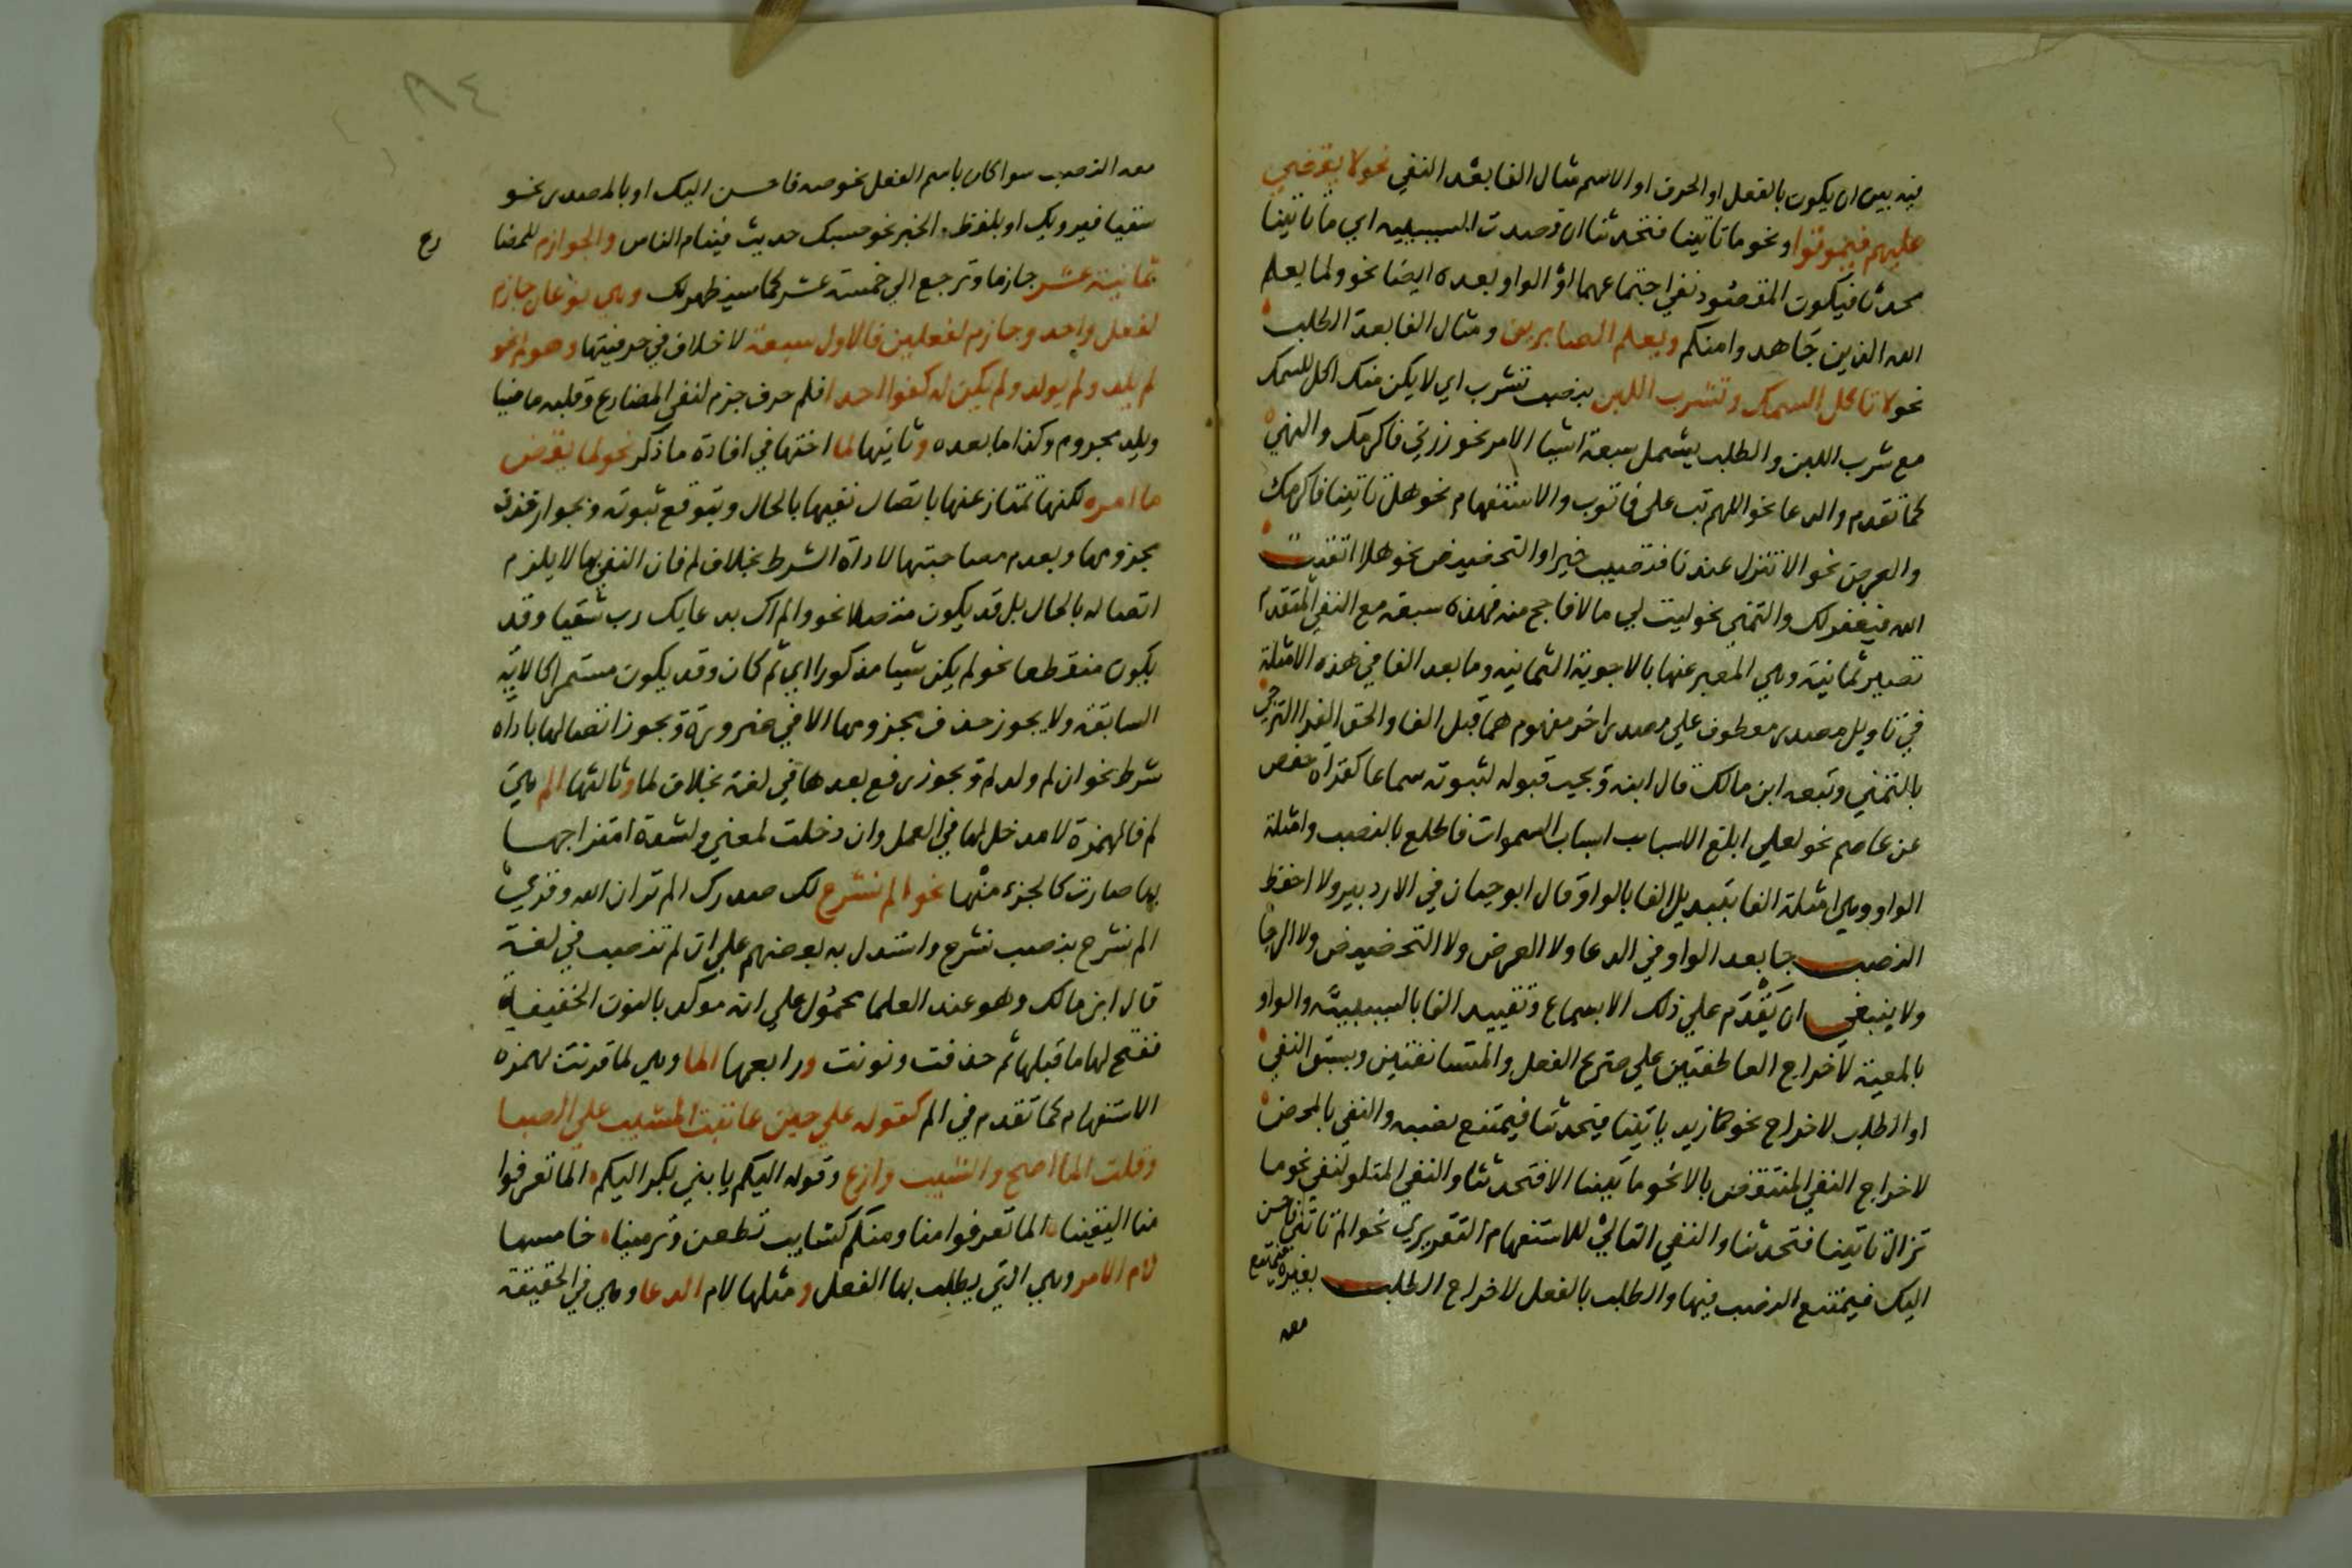 فيه بين ان يكون بالفعل او الحرف او الاسم مثال الفا بعد النفي نحو لا يقضي
عليهم فيموتوا ونحو ما تاتينا فتحدثنا ان قصدت السببيه اي ما تاتينا
محدثا فيكون المقصود نفي اجتماعهما او الواو بعده ايضا نحو ولما يعلم
الله الذين جاهدوا منكم ويعلم الصابرين ومثال الفا بعد الطلب
نحو لا تاكل السمك وتشرب اللبن بنصب تشرب اي لا يكن منك اكل للسمك
مع شرب اللبن والطلب يشمل سبعة اشيا الامر نحو زرني فاكرمك والنهي
كما تقدم والدعا نحو اللهم تب علي فاتوب والاستفهام نحو هل تاتينا فاكرمك
والعرض نحو الا تنزل عندنا فتصيب خيرا والتحضيض نحو هلا اتقيت
الله فيغفر لك والتمني نحو ليت لي مالا فاحج منه فهذه سبعة مع النفي المتقدم
تصير ثمانية وهي المعبر عنها بالاجوبة الثمانيه وما بعد الفا في هذه الامثلة
في تاويل مصدر معطوف علي مصدر اخر مفهوم مما قبل الفا والحق الفرا الترجي
بالتمني وتبعه ابن مالك قال ابنه ويجب قبوله لثبوته سماعا كقراة حفص
عن عاصم نحو لعلي ابلغ الاسباب اسباب السموات فاطلع بالنصب وامثلة
الواو وهي امثلة الفا بتبديل الفا بالواو قال ابو حيان في الارد بير ولا احفظ
النصب جا بعد الواو في الدعا ولا العرض ولا التحضيض ولا الرجا
ولا ينبغي ان يقدم علي ذلك الا بسماع وتقييد الفا بالسببية والواو
بالمعية لاخراج العاطفتين علي صريح الفعل والمستانفتين وبسبق النفي
او الطلب لاخراج نحو كما زيد ياتينا فيحدثنا فيمتنع نصبه والنفي بالمحض
لاخراج النفي المنتقض بالا نحو ما تاتينا الا فتحدثنا والنفي المتلو لنفي نحو ما
تزال تاتينا فتحدثنا والنفي التالي للاستفهام التقريري نحو الم تاتني فاحسن
اليك فيمتنع النصب فيها والطلب بالفعل لاخراج الطلب بغيره فيمتنع
معه
٨٤
معه النصب سوا كان باسم الفعل نحو صه فاحسن اليك او بالمصدر نحو
سقيا فيرويك او بلفظ الخبر نحو حسبك حديث فينام الناس والجوازم للمضا
رع
ثمانية عشر جازما وترجع الي خمسة عشر كما سيظهر لك وهي نوعان جازم
لفعل واحد وجازم لفعلين فالاول سبعة لا خلاف في حرفيتها وهو لم نحو
لم يلد ولم يولد ولم يكن له كفوا احد فلم حرف جزم لنفي المضارع وقلبه ماضيا
ويلد مجزوم وكذا ما بعده وثانيها لما اختها في افادة ما ذكر نحو لما يقض
ما امره لكنها تمتاز عنها باتصال نفيها بالحال وبتوقع ثبوته وبجواز حذف
مجزومها وبعدم مصاحبتها لاداة الشرط بخلاف لم فان النفي بها لا يلزم
اتصاله بالحال بل قد يكون متصلا نحو ولم اك بدعايك رب شقيا وقد
يكون منقطعا نحو لم يكن شيا مذكورا اي ثم كان وقد يكون مستمرا كالاية
السابقة ولا يجوز حذف مجزومها الا في ضرورة ويجوز اتصالها باداه
شرط نحو ان لم ولو لم ويجوز رفع بعدها في لغة بخلاف لما وثالثها الم هي
لم فالهمزة لا مدخل لها في العمل وان دخلت لمعني ولشدة امتزاجها
بها صارت كالجزء منها نحو الم نشرح لك صدرك الم تر ان الله وقري
الم نشرح بنصب نشرح واستدل به بعضهم علي ان لم تنصب في لغة
قال ابن مالك وهو عند العلما محمول علي انه موكد بالنون الخفيفة
ففتح لها ما قبلها ثم حذفت ونونت ورابعها الما وهي لما قرنت بهمزه
الاستفهام كما تقدم في الم كقوله علي حين عاتبت المشيب علي الصبا
وقلت الما اصح والشيب وازع وقوله اليكم يا بني بكر اليكم الما تعرفوا
منا اليقينا الما تعرفوا منا ومنكم كتايب تطعن وترمينا خامسها
لام الامر وهي التي يطلب بها الفعل ومثلها لام الدعا وهي في الحقيقة